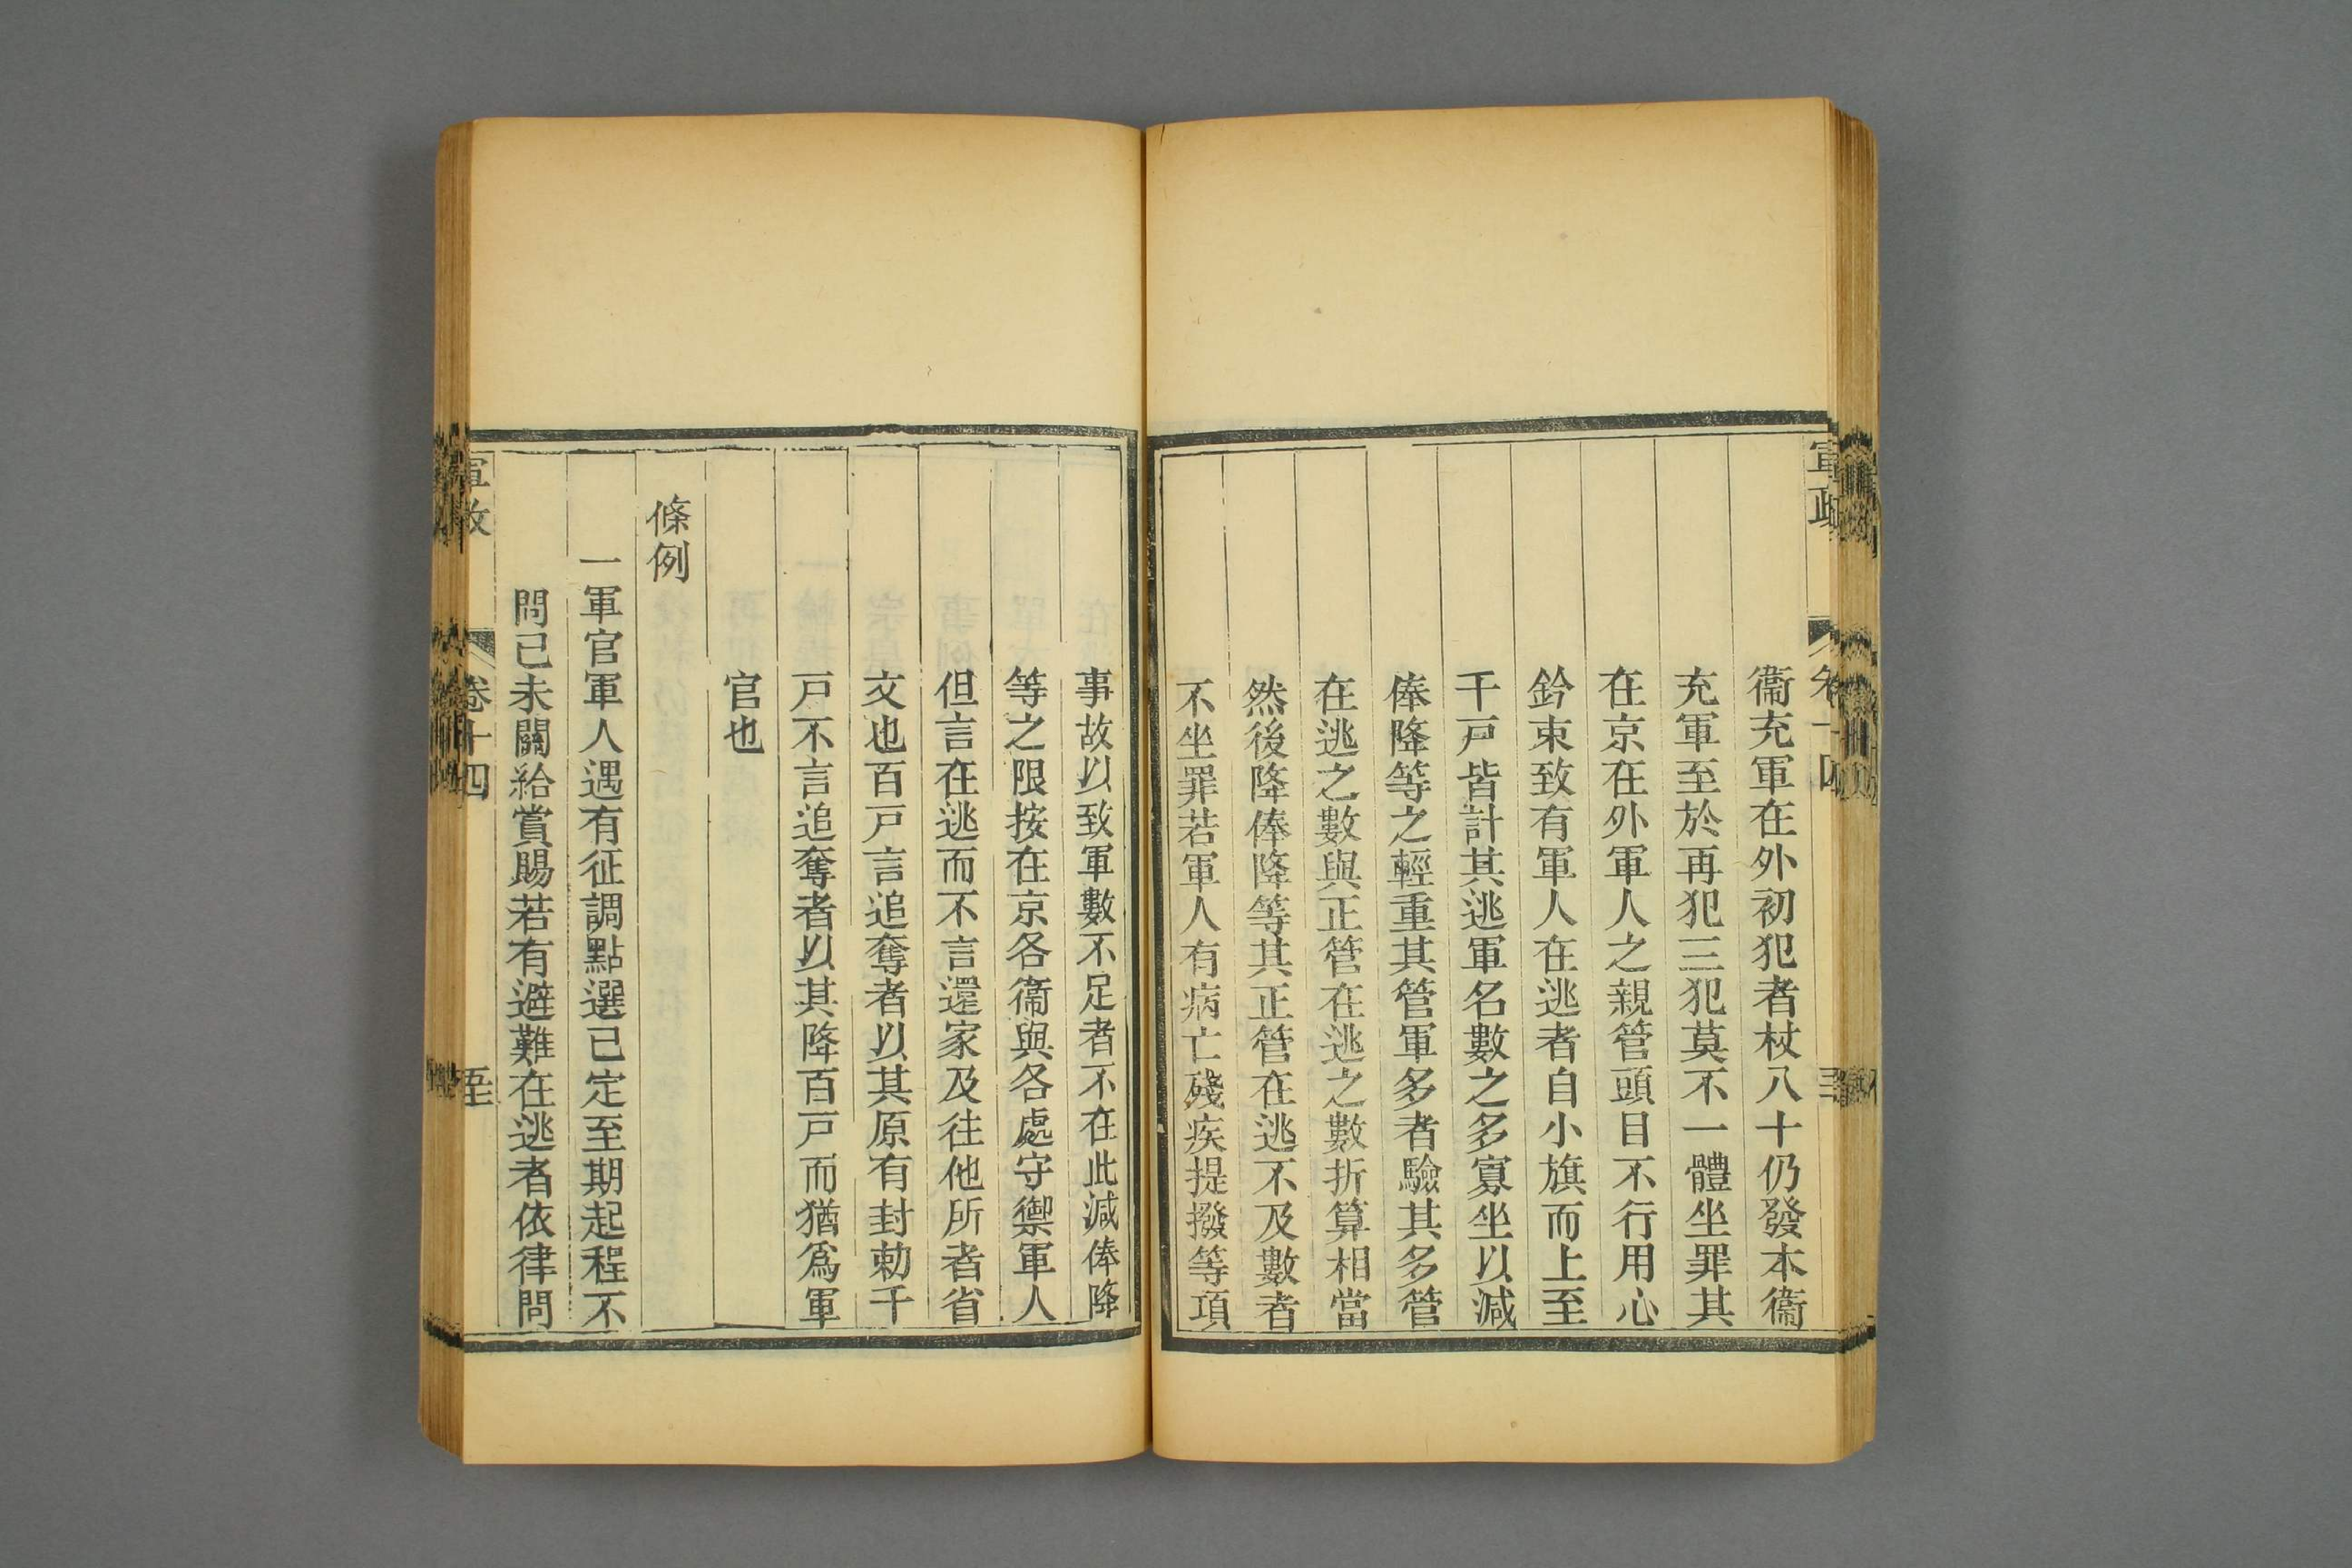 衞充軍在外初犯者杖八十仍發本衞
充軍至於再犯三犯莫不一體坐罪其
在京在外軍人之親管頭目不行用心
鈐束致有軍人在逃者自小旗而上至
千戸皆計其逃軍名數之多寡坐以減
俸降等之輕重其管軍多者驗其多管
在逃之數與正管在逃之數折算相當
然後降俸降等其正管在逃不及數者
不坐罪若軍人有病亡殘疾提撥等項
事故以致軍數不足者不在此減俸降
等之限按在京各衞與各處守禦軍人
但言在逃而不言還家及往他所者省
文也百戸言追奪者以其原有封勅千
戸不言追奪者以其降百戸而猶爲軍
官也
條例
一軍官軍人遇有征調點選已定至期起程不
問已未關給賞賜若有避難在逃者依律問
軍政
卷十四